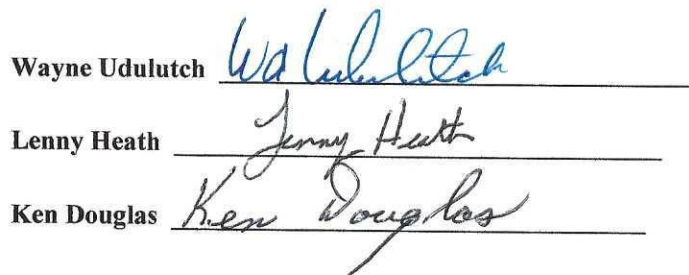 Wayne Udulutch Wd Udulutch
Lenny Heath Lenny Heath
Ken Douglas Ken Douglas